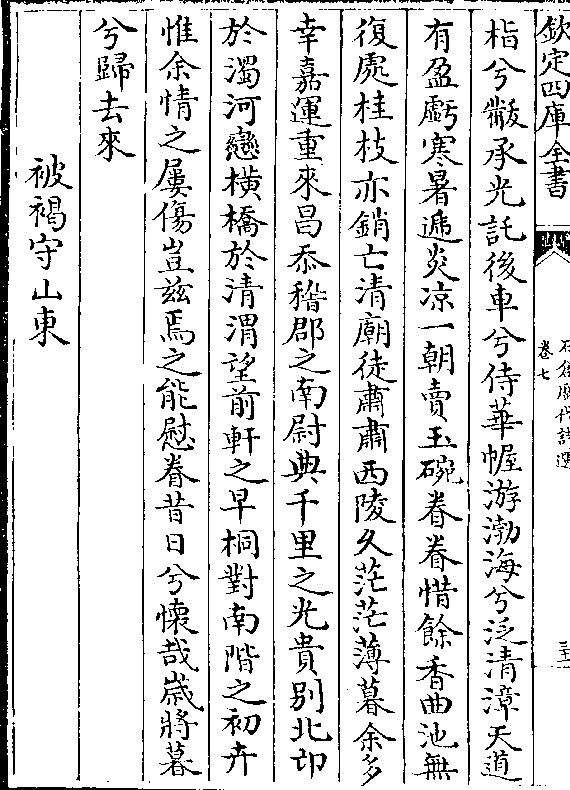 欽定四庫全書
石倉歷代詩選
卷七
三十一
栺兮黻承光託後車兮侍華幄游渤海兮泛清漳天道
有盈虧寒暑遞炎凉一朝賣玉碗眷眷惜餘香曲池無
復處桂枝亦銷亡清廟徒肅肅西陵久茫茫薄暮余多
幸嘉運重來昌忝稽郡之南尉典千里之光貴别北邙
於濁河戀橫橋於清渭望前軒之早桐對南階之初卉
惟余情之屢傷豈兹焉之能慰眷昔日兮懷哉歲將暮
兮歸去來
被褐守山東